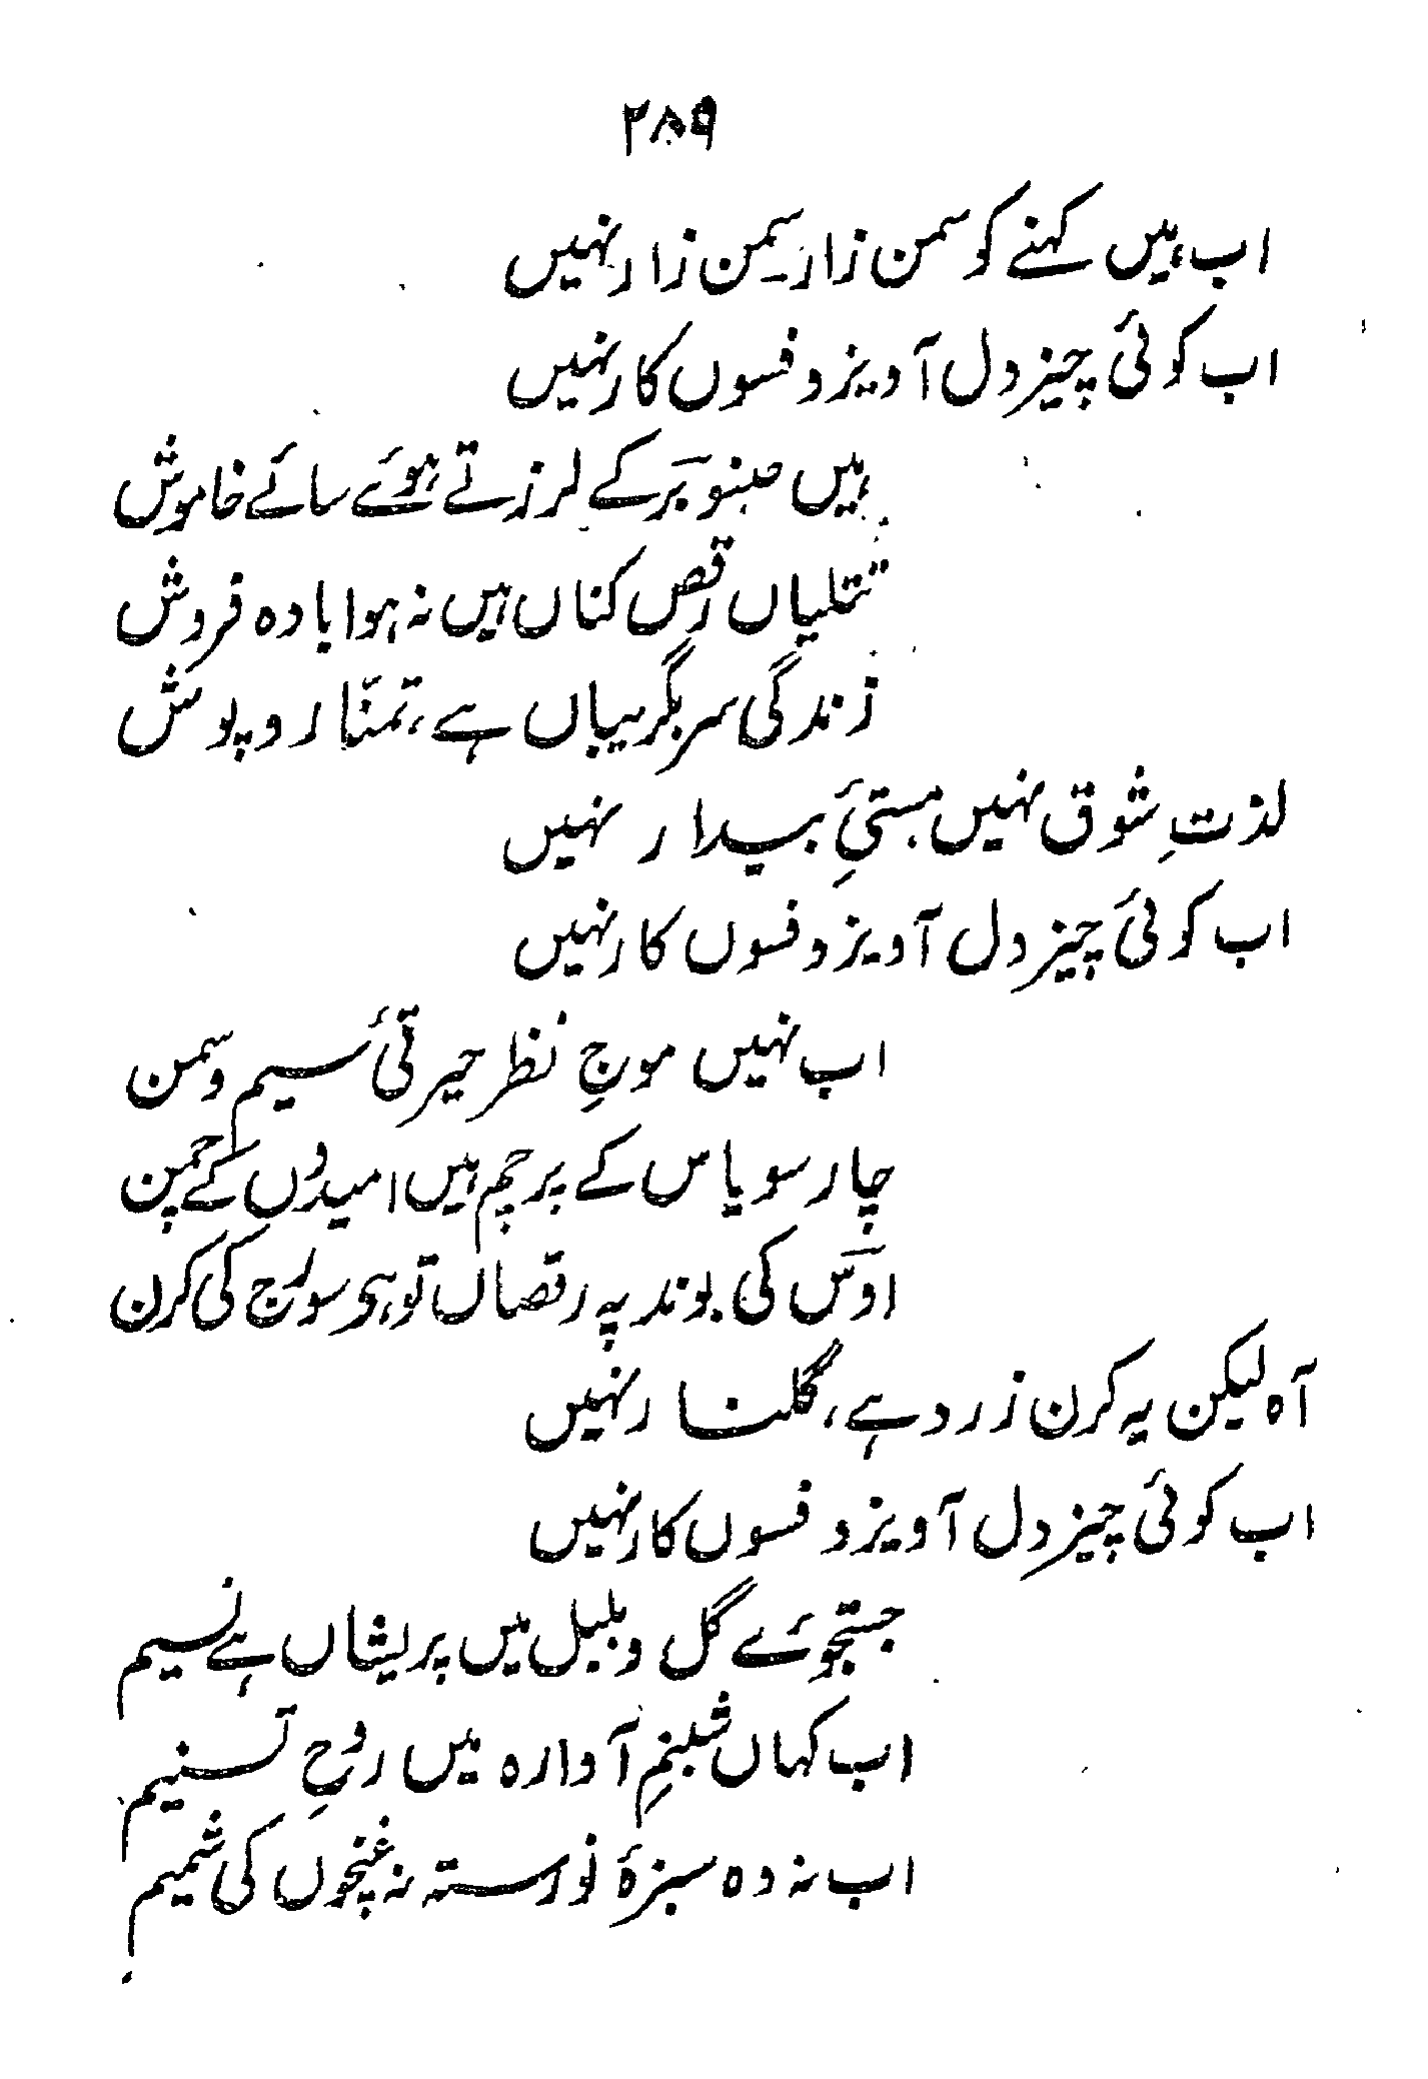 ۲۸۹
اب ہیں کہنے کو سمن زار۔ سمن زار نہیں
اب کوئی چیز دل آویز و فسوں کار نہیں
ہیں صنوبر کے لرزتے ہوئے سائے خاموش
تتلیاں رقص کناں ہیں نہ ہوا بادہ فروش
زندگی سر بگریباں ہے، تمنّا روپوش
لذتِ شوق نہیں ہستیِٔ بیدار نہیں
اب کوئی چیز دل آویز و فسوں کار نہیں
اب نہیں موجِ نظر حیرتیٔ سیم و سمن
چار سو یاس کے پرچم ہیں امیدوں کے چمن
اوس کی بوند پہ رقصاں تو ہی سورج کی کرن
آہ لیکن یہ کرن زرد ہے، گلنار نہیں
اب کوئی چیز دل آویز و فسوں کار نہیں
جستجوئے گل و بلبل میں پریشاں ہے نسیم
اب کہاں شبنمِ آوارہ میں روحِ تسنیم
اب نہ وہ سبزۂ نورستہ نہ غنچوں کی شمیم